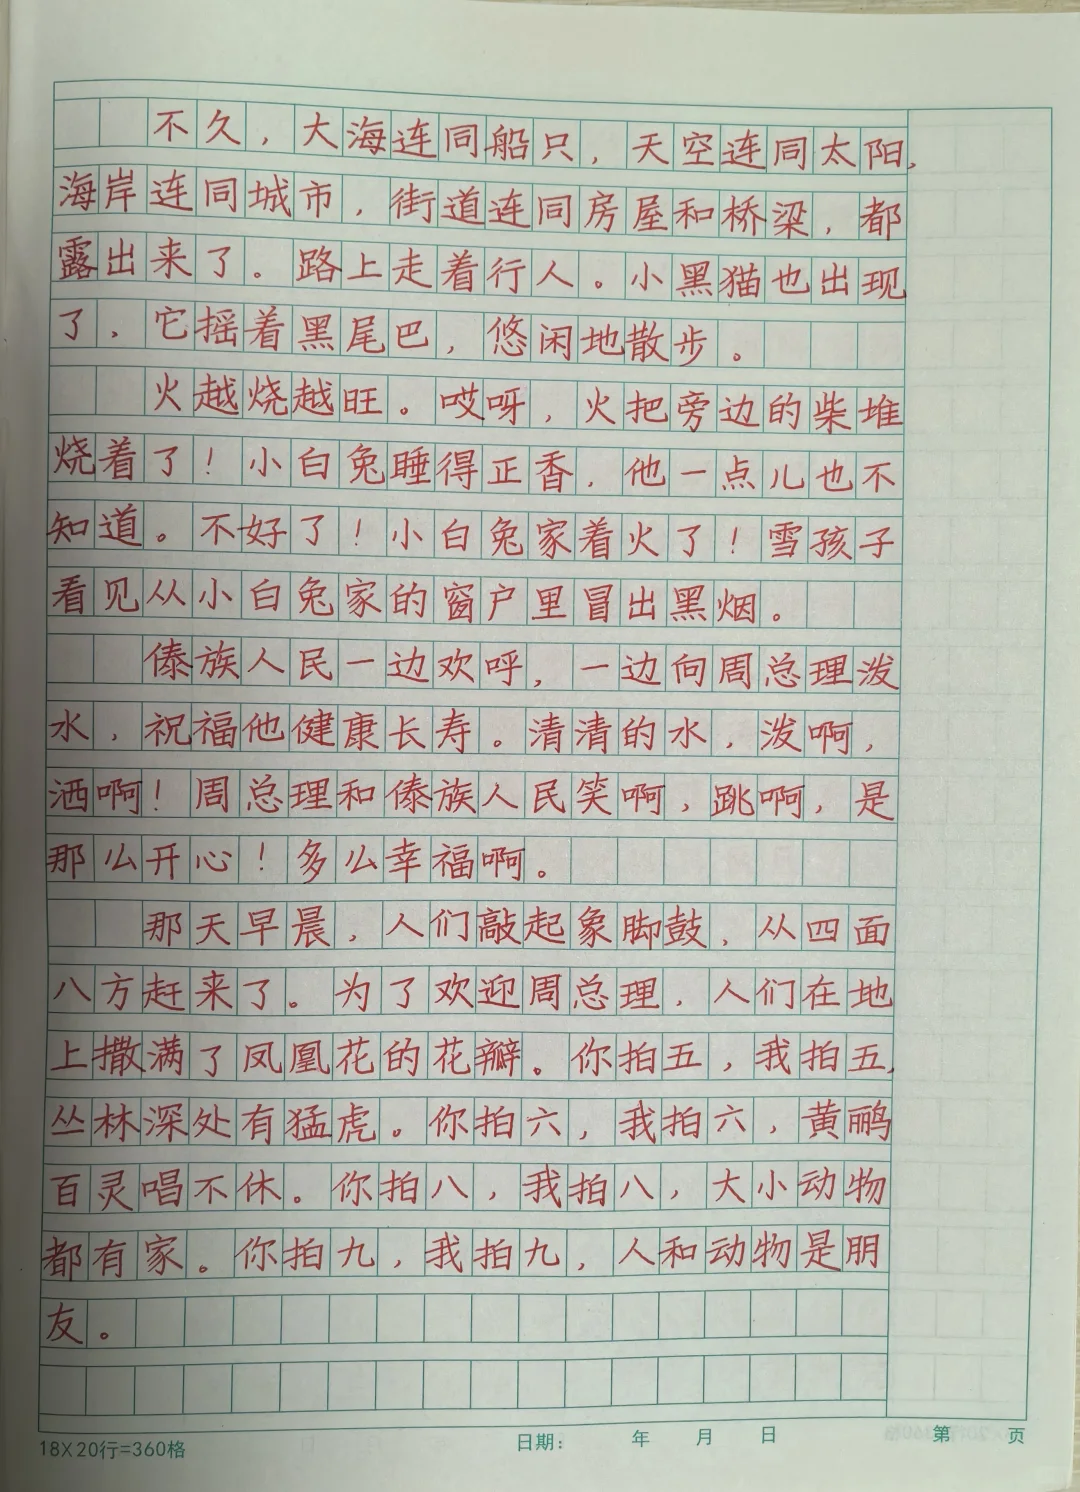 不久，大海连同船只，天空连同太阳，
海岸连同城市，街道连同房屋和桥梁，都
露出来了。路上走着行人。小黑猫也出现
了，它摇着黑尾巴，悠闲地散步。
火越烧越旺。哎呀，火把旁边的柴堆
烧着了！小白兔睡得正香，他一点儿也不
知道。不好了！小白兔家着火了！雪孩子
看见从小白兔家的窗户里冒出黑烟。
傣族人民一边欢呼，一边向周总理泼
水，祝福他健康长寿。清清的水，泼啊，
洒啊！周总理和傣族人民笑啊，跳啊，是
那么开心！多么幸福啊。
那天早晨，人们敲起象脚鼓，从四面
八方赶来了。为了欢迎周总理，人们在地
上撒满了凤凰花的花瓣。你拍五，我拍五，
丛林深处有猛虎。你拍六，我拍六，黄鹂
百灵唱不休。你拍八，我拍八，大小动物
都有家。你拍九，我拍九，人和动物是朋
友。
18X20行=360格 日期： 年 月 日 第 页